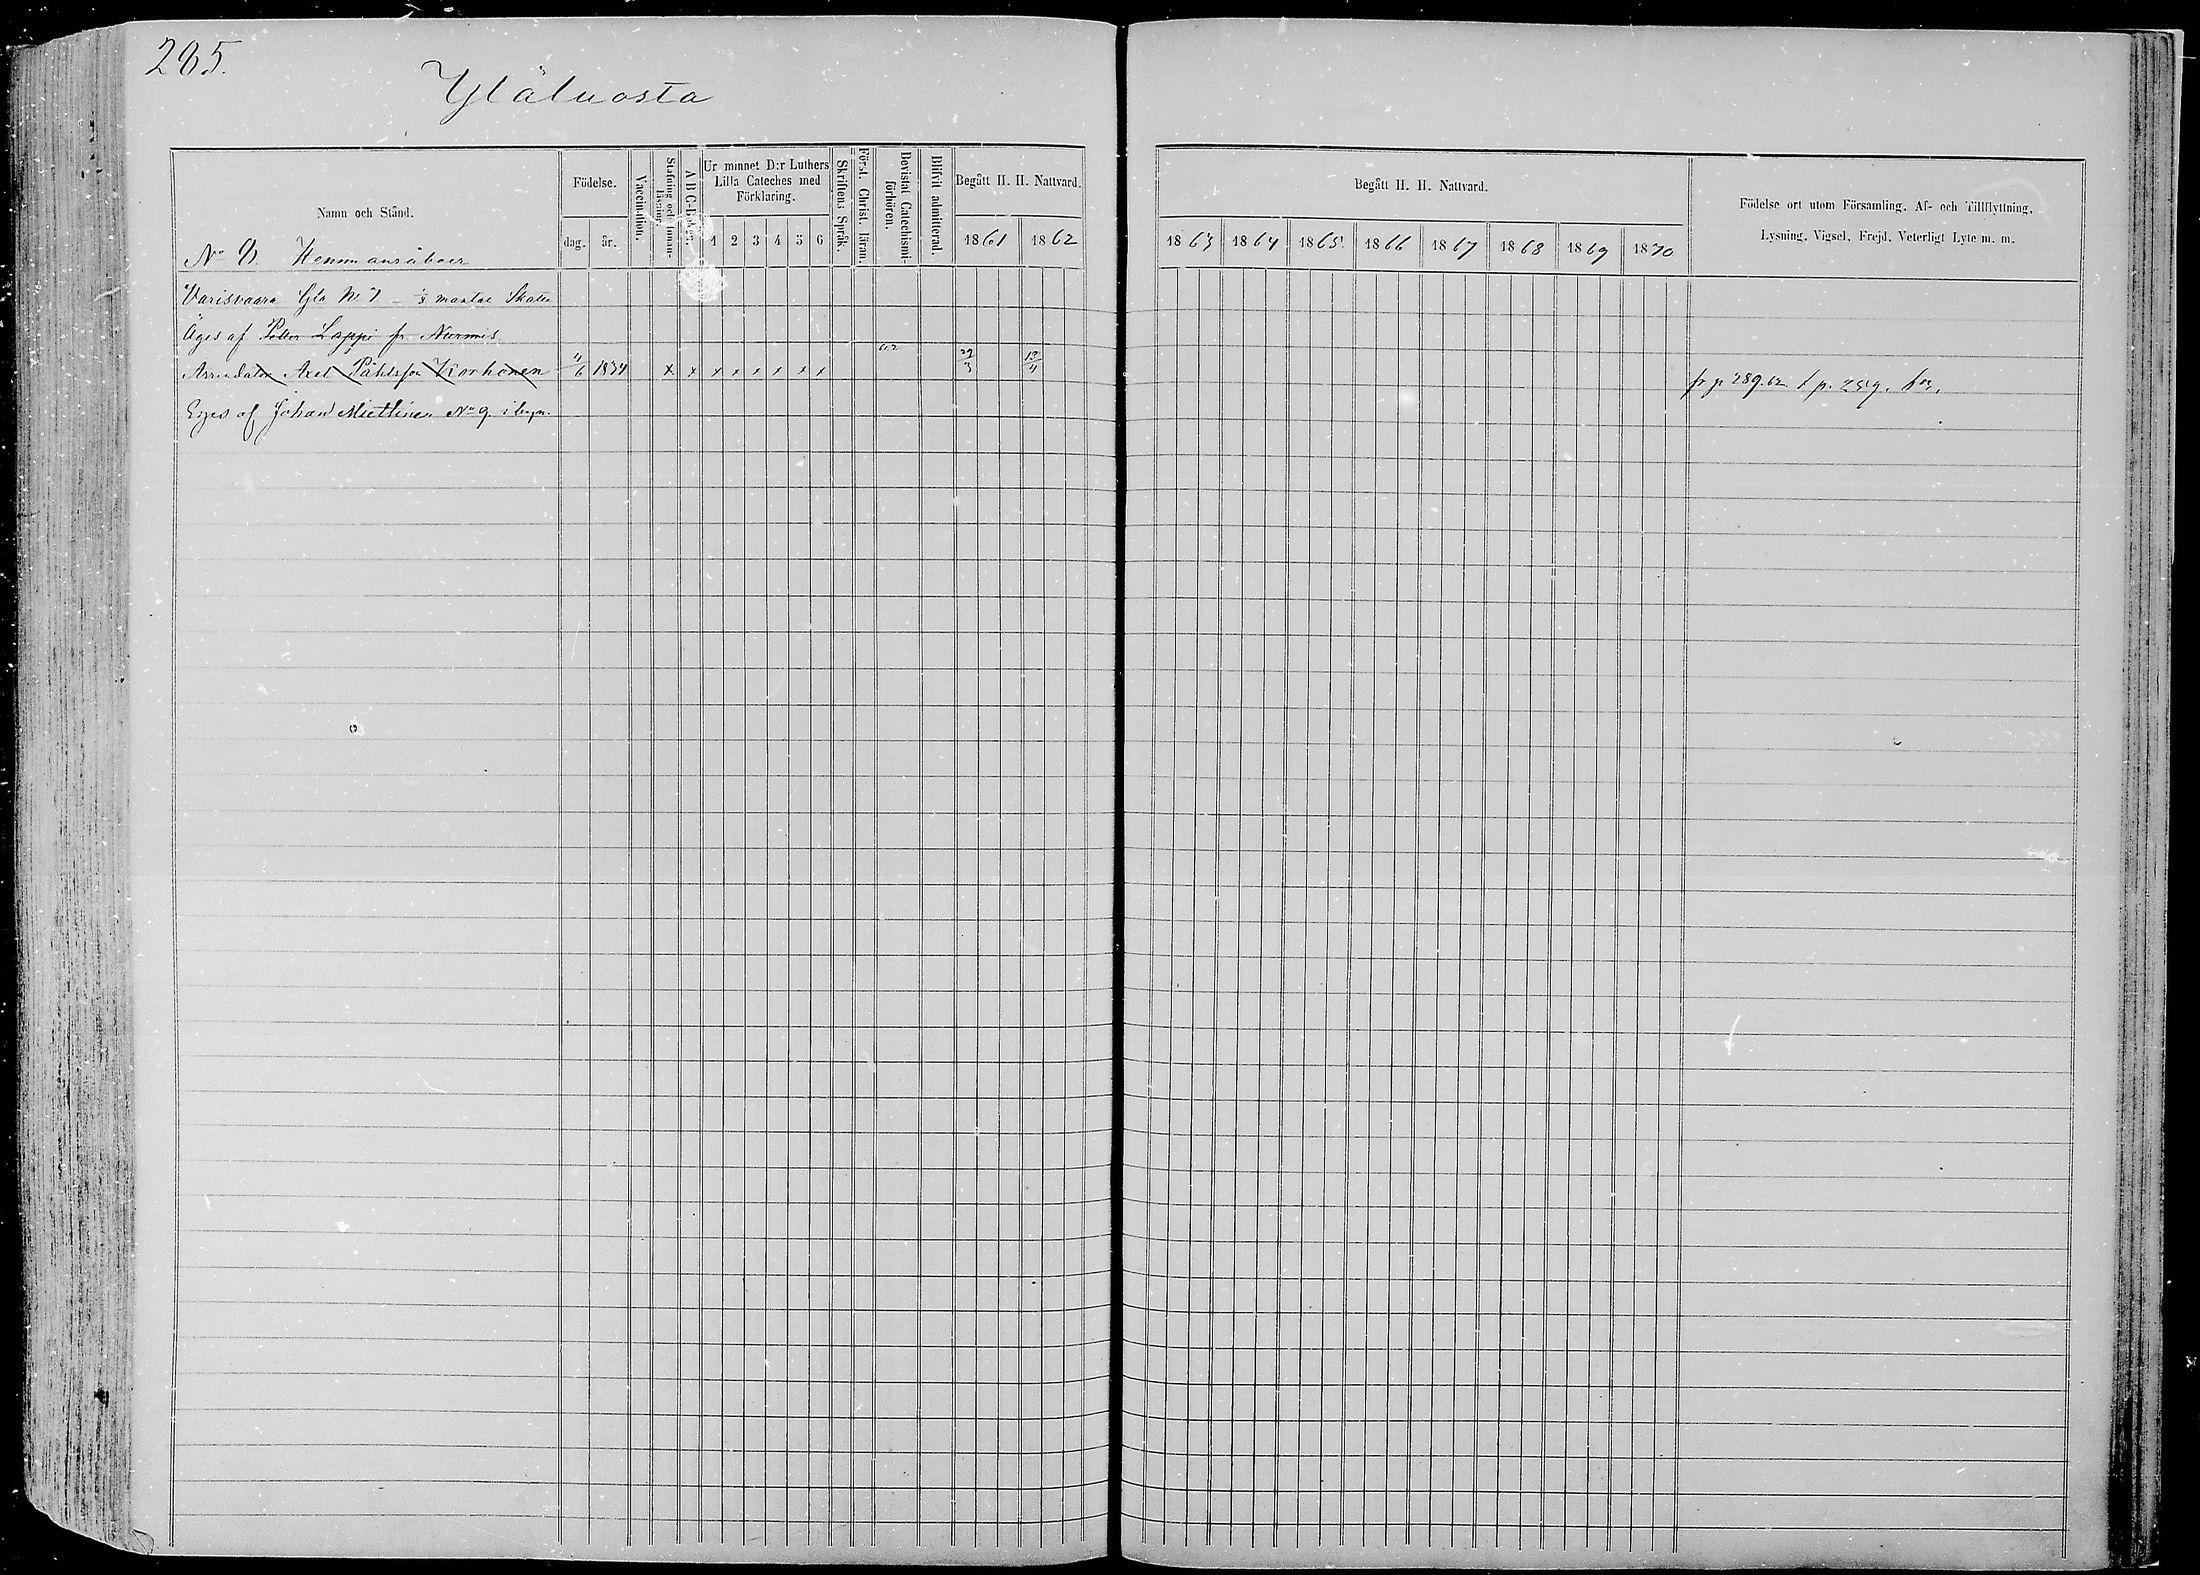 265.
Yläluosta
Namn och Stånd.
Födelse.
dag. år.
Vaccination.
Stafning och Innanläsning.
A B C-Boken.
Ur minnet D:r Luthers Lilla Cateches med Förklaring.
1 2 3 4 5 6
Skriftens Språk.
Först. Christ. läran.
Bevistat Catechismiförhören.
Blifvit admitterad.
Begått H. H. Nattvard.
1861 1862
Begått H. H. Nattvard.
1863 1864 1865 1866 1867 1868 1869 1870
Födelse ort utom Församling, Af- och Tillflyttning,
Lysning, Vigsel, Frejd, Veterligt Lyte m. m.
Hemmansåboer
Varisvaara N:o 7 – mantal Skatte
Äges af Petter Lappi fr. Nurmis
Arrendator Axel Påhlsson Korhonen 11/6 1834 x x x x x x x x 62 29/3 13/4 fr p. 289. 62. t p. 259.
Eges af Johan Miettinen N:o 9. i byn.